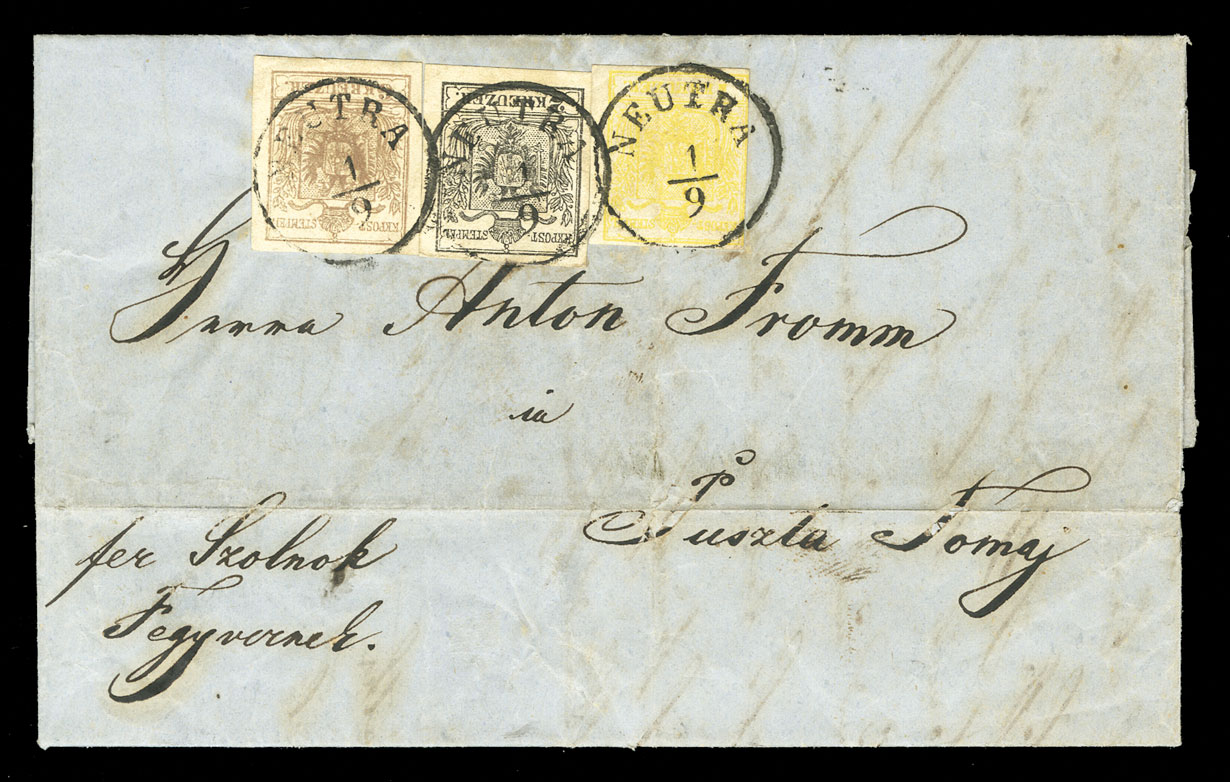 KREUZER.
KKPOST-STEMPEL
NEUTRA
1/9
2 KREUZER
KKPOST-STEMPEL
NEUTRA
1/9
NEUTRA
1/9
Herrn Anton Fromm
in
Puszta Tomaj
per Szolnok
Fegyvernek.